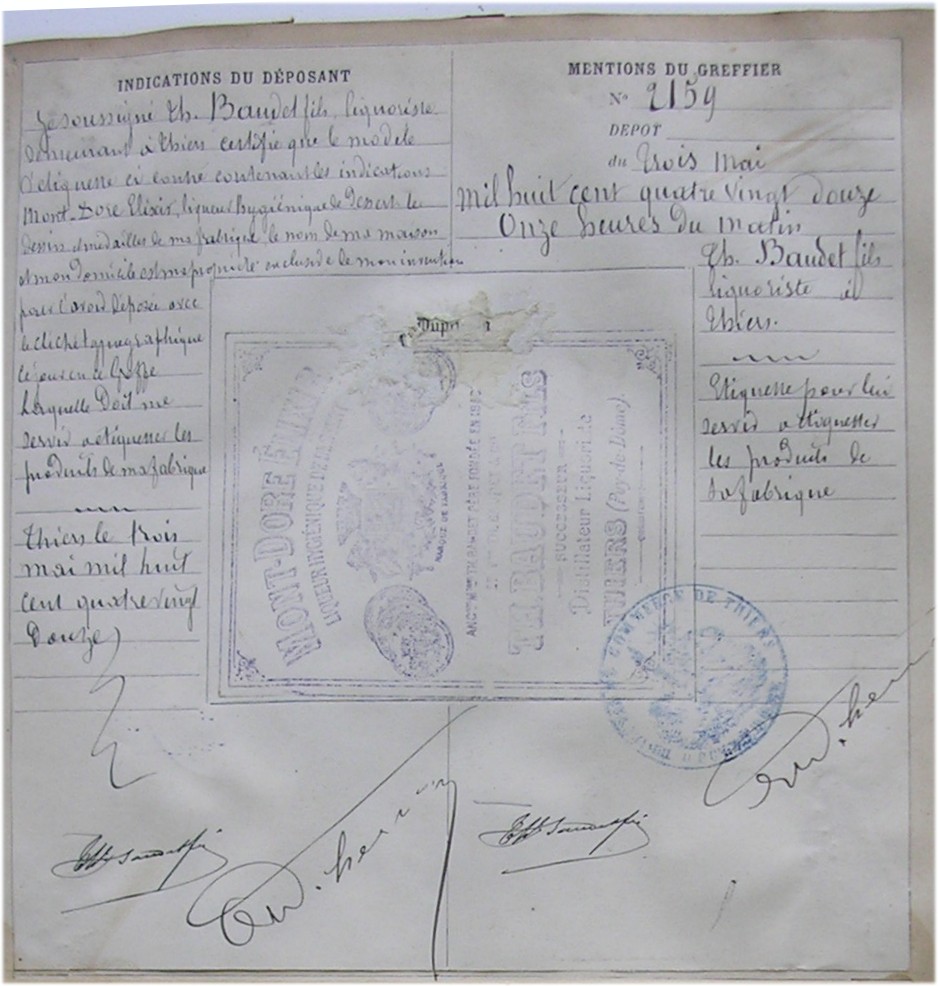 INDICATIONS DU DÉPOSANT
Je soussigné Th. Baudet fils, liquoriste
demeurant à Thiers certifie que le modèle
d'etiquette ci contre contenant les indications
Mont-Dore Elixir, liqueur hygiénique de Dessert les
dessins et medailles de ma fabrique le nom de ma maison
et mon domicile est ma propriété exclusive de mon invention
pour l'avoir déposée avec
le cliché typographique
ce jour en ce Greffe
laquelle doit me
servir a etiquetter les
produits de ma fabrique
Thiers le trois
mai mil huit
cent quatre vingt
Douze
MENTIONS DU GREFFIER
N° 2159
DEPOT
du trois mai
mil huit cent quatre vingt douze
Onze heures du matin
Th. Baudet fils
liquoriste à
Thiers.
Etiquette pour lui
servir a etiquetter
les produits de
sa fabrique
MONT-DORE ÉLIXIR
LIQUEUR HYGIÉNIQUE DE DESSERT
MARQUE DE FABRIQUE
ANCNE MON TH. BAUDET PÈRE FONDÉE EN
TH. BAUDET FILS
SUCCESSEUR
Distillateur Liquoriste
THIERS (Puy-de-Dôme).
COMMERCE DE THIERS